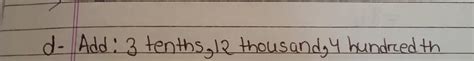 d- Add: 3 tenths, 12 thousand, 4 hundredth